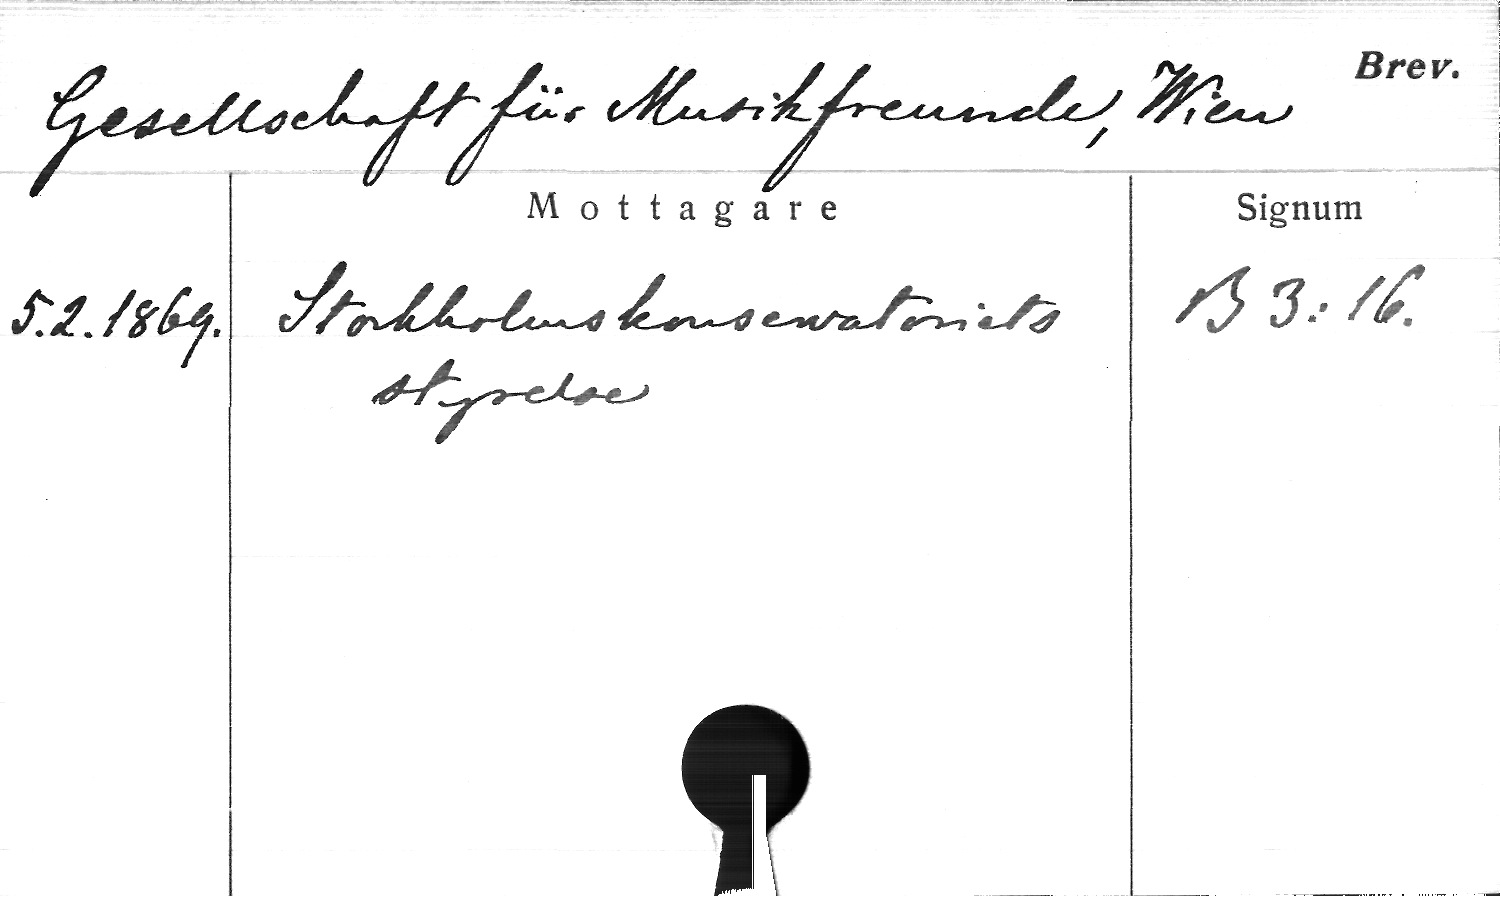 Brev.
Gesellschaft für Musikfreunde, Wien
Mottagare
Signum
5.2.1869. Stockholmskonservatoriets B 3:16.
styrelse